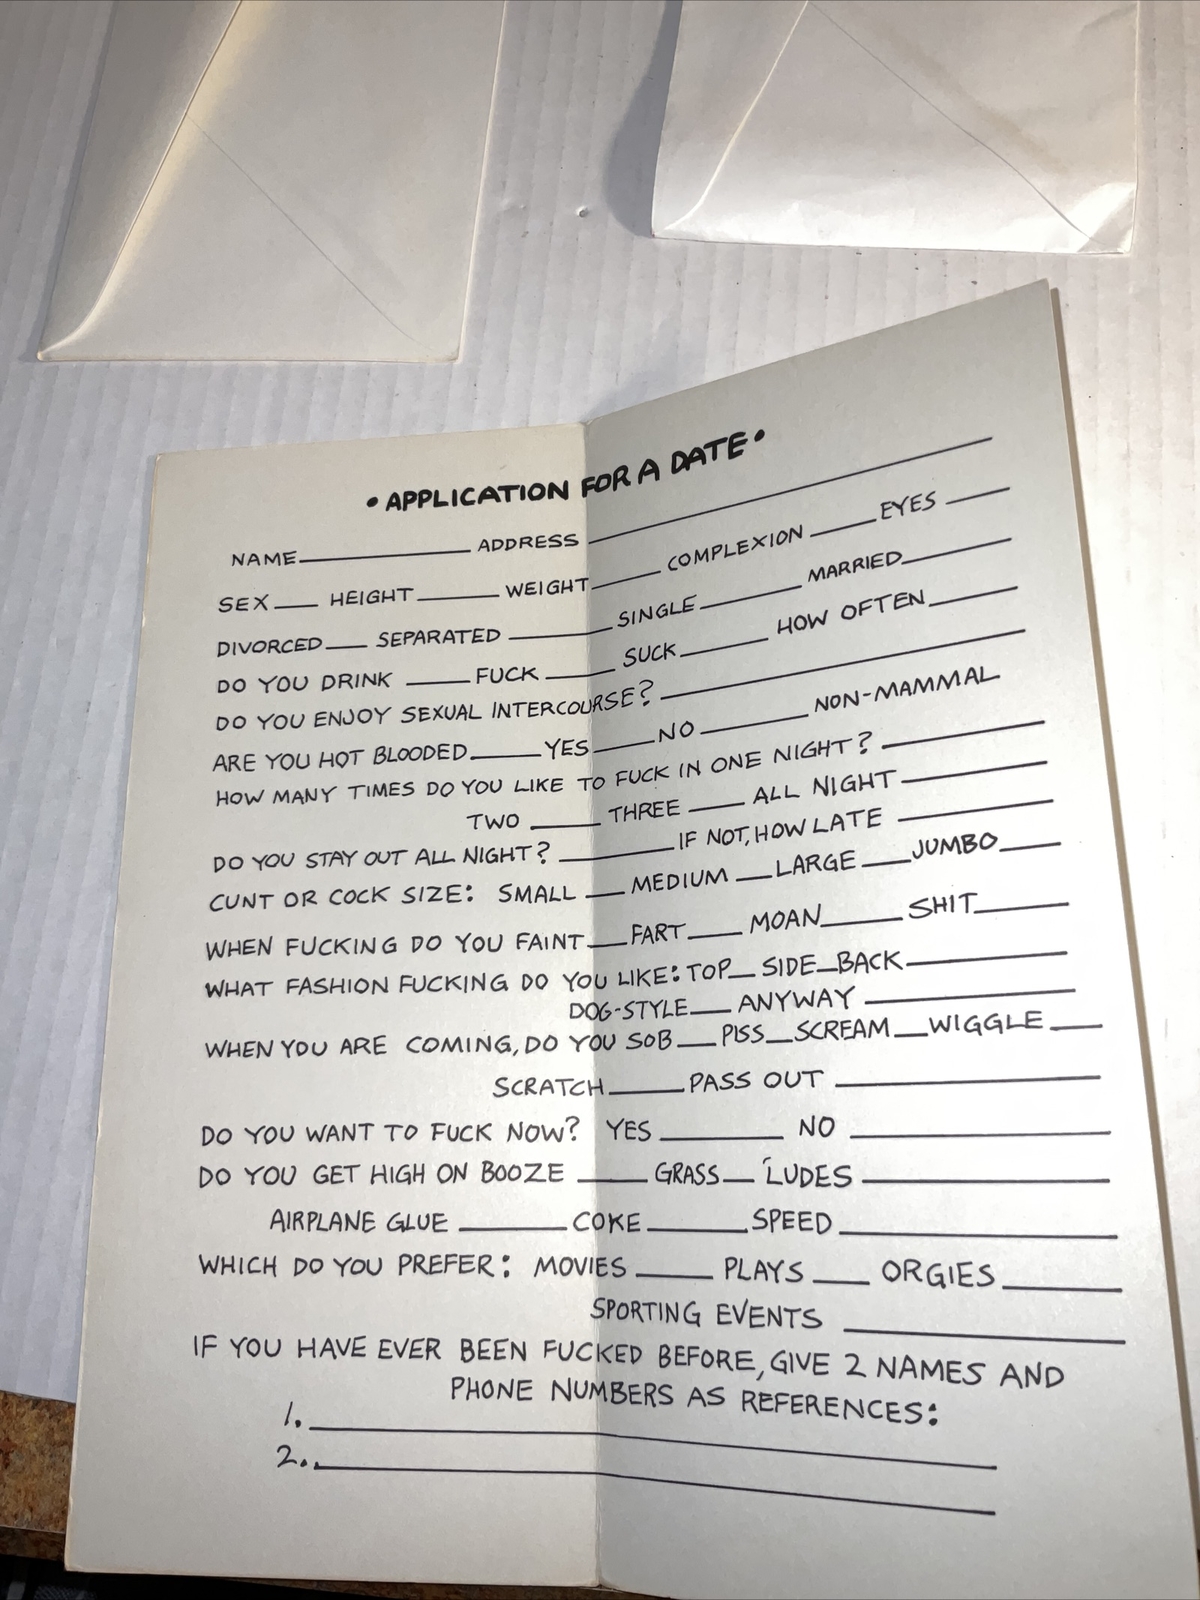 • APPLICATION FOR A DATE •
NAME__________ ADDRESS ____________________
SEX___ HEIGHT_____ WEIGHT_____ COMPLEXION ____ EYES ____
DIVORCED___ SEPARATED ______ SINGLE______ MARRIED______
DO YOU DRINK ____ FUCK ____ SUCK_____ HOW OFTEN_____
DO YOU ENJOY SEXUAL INTERCOURSE? ____________________
ARE YOU HOT BLOODED____ YES____ NO ______ NON-MAMMAL
HOW MANY TIMES DO YOU LIKE TO FUCK IN ONE NIGHT? ________
TWO ____ THREE ____ ALL NIGHT ________
DO YOU STAY OUT ALL NIGHT? ______ IF NOT, HOW LATE ________
CUNT OR COCK SIZE: SMALL ___ MEDIUM ___ LARGE ___ JUMBO____
WHEN FUCKING DO YOU FAINT___ FART____ MOAN_____ SHIT_____
WHAT FASHION FUCKING DO YOU LIKE: TOP__ SIDE__ BACK________
DOG-STYLE___ ANYWAY __________
WHEN YOU ARE COMING, DO YOU SOB___ PISS__ SCREAM__ WIGGLE ___
SCRATCH_____ PASS OUT ____________
DO YOU WANT TO FUCK NOW? YES ________ NO ____________
DO YOU GET HIGH ON BOOZE ____ GRASS__ 'LUDES ____________
AIRPLANE GLUE ______ COKE______ SPEED ____________
WHICH DO YOU PREFER: MOVIES _____ PLAYS ____ ORGIES ______
SPORTING EVENTS ____________
IF YOU HAVE EVER BEEN FUCKED BEFORE, GIVE 2 NAMES AND
PHONE NUMBERS AS REFERENCES:
1. ______________________________
2. ______________________________